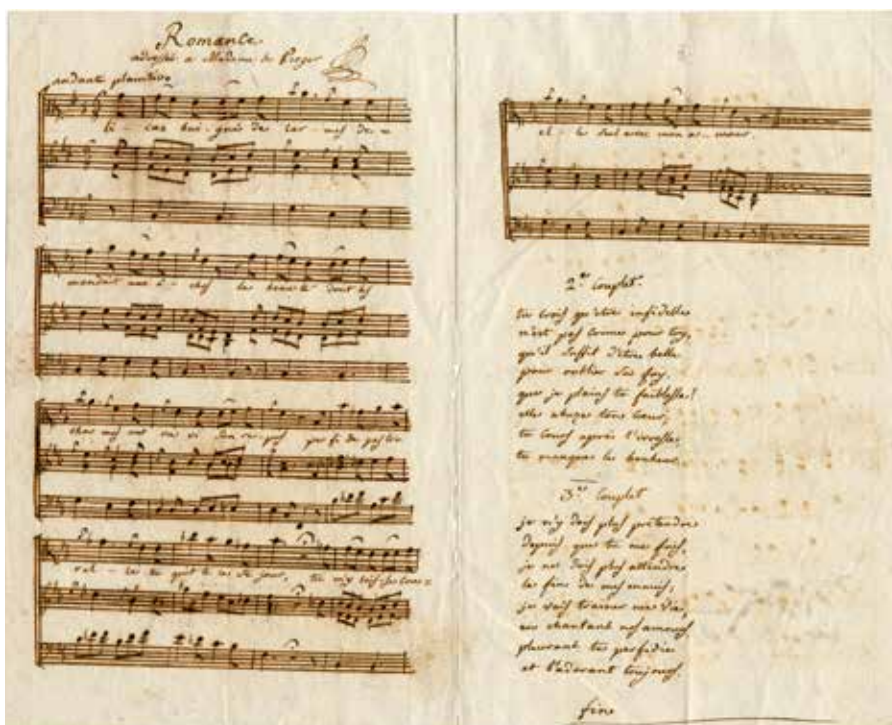 Romance
adressée a Madame de Verger
andante plaintivo
li - cas bai - gnés des lar - mes de
mandait aux é - chos la beauté dont les
charmes ont ravi son repos perfide pastou
rel - le tu quit te ces sé jour, tu n'y laisses
el - le seul avec mon a - mour.
2.e Couplet.
tu crois qu'etre infidelle
n'est pas crime pour toy,
qu'il suffit d'etre belle
pour oublier sa foy.
que je plains ta faiblesse!
elle abuse ton coeur,
tu cours après l'ivresse,
tu manques le bonheur.
3.e Couplet
je n'y dois plus pretendre
depuis que tu me fuis,
je ne dois plus attendre
la fin de mes ennuis,
je vais trainer ma vie,
en chantant nos amours,
pleurant ta perfidie
et t'adorant toujours.
fine